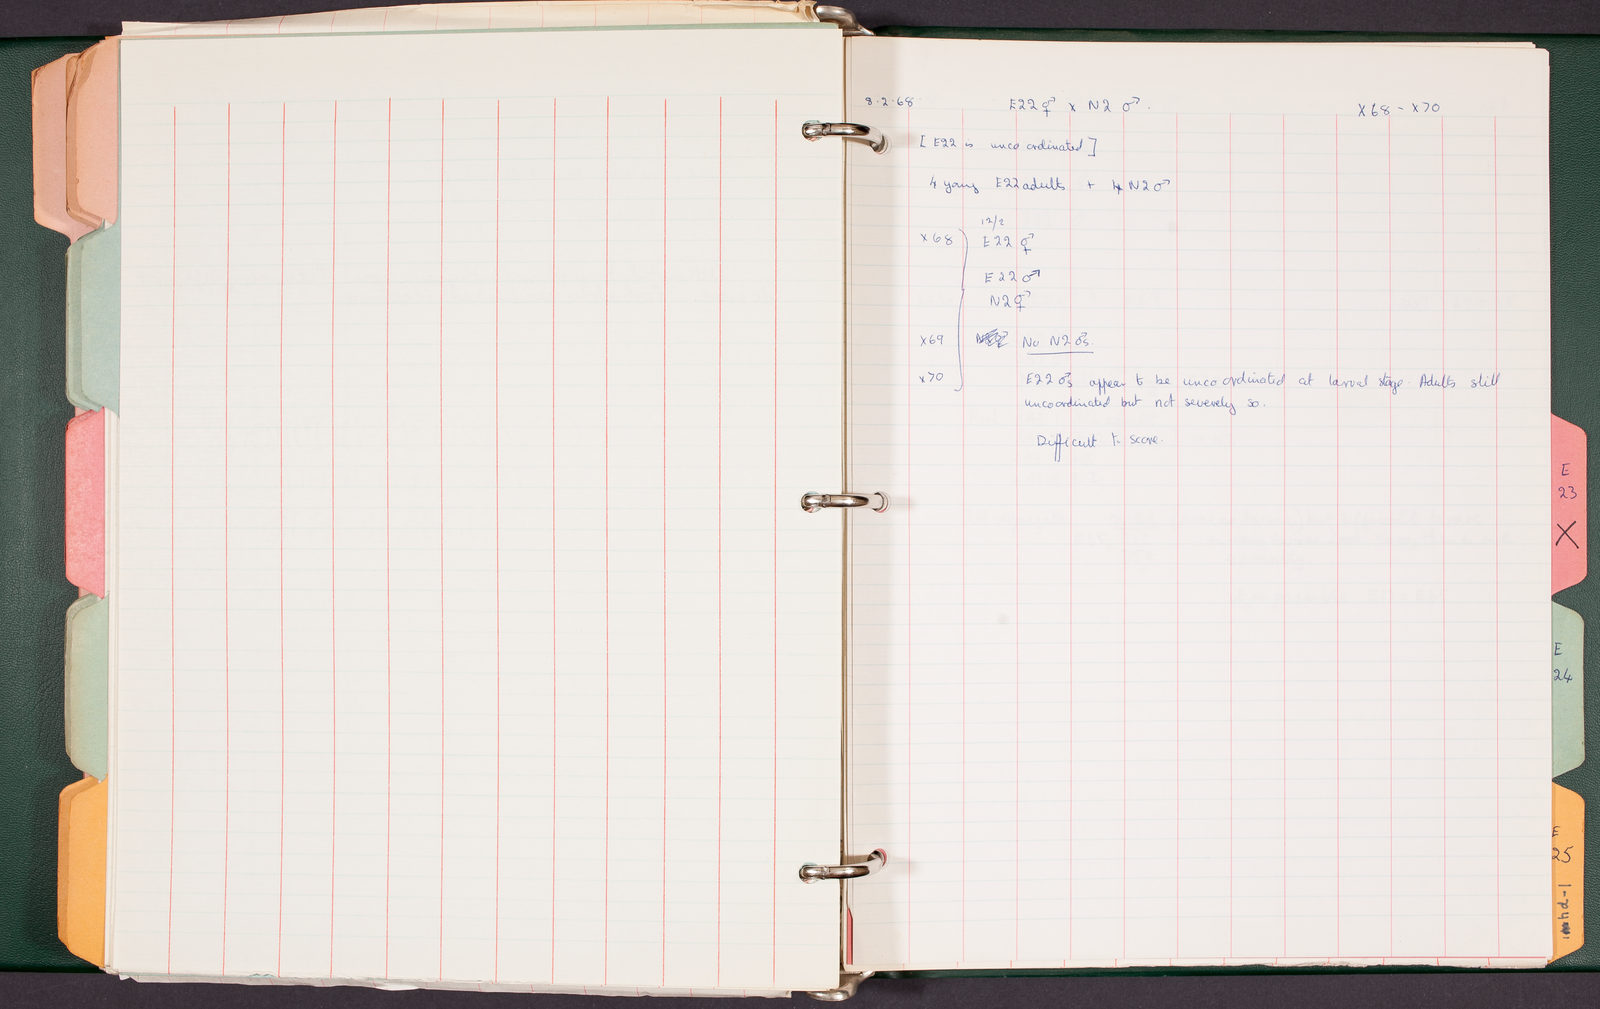 8.2.68 E22 ⚥ x N2 ♂. X68 - X70
[E22 is unco ordinated]
4 young E22 adults + 4 N2 ♂
12/2
X68 E22 ⚥
E22 ♂
N2 ⚥
X69 No N2 ♂s.
X70 E22 ♂s appear to be unco ordinated at larval stage. Adults still
uncoordinated but not severely so.
Difficult to score.
E
23
X
E
24
E
25
hd-1